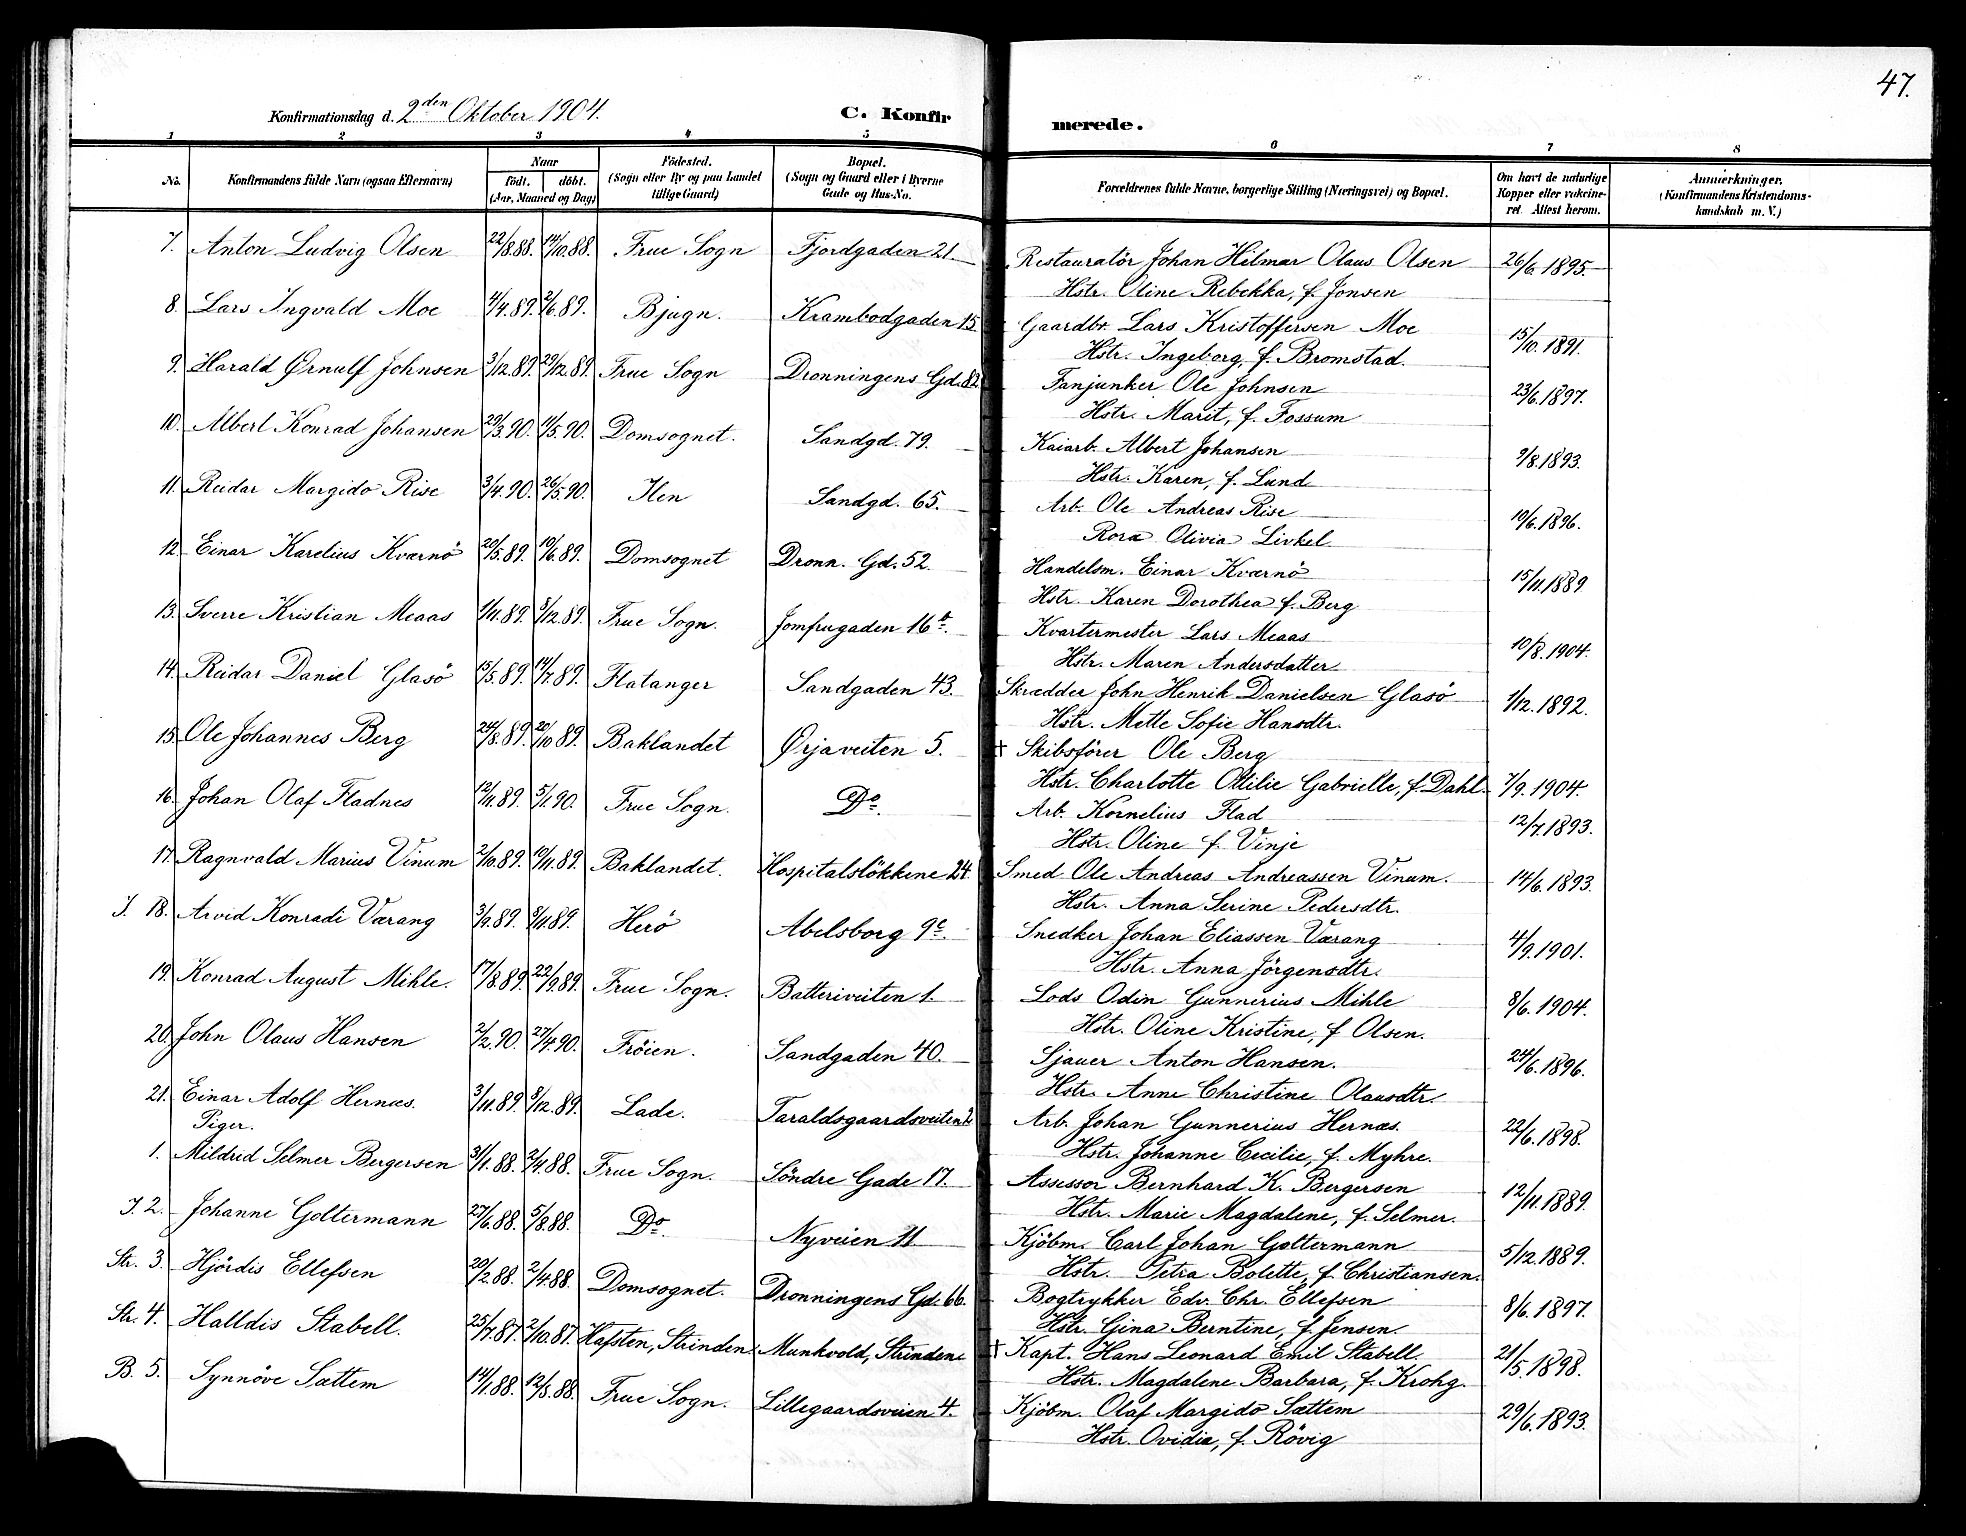 47.
Konfirmationsdag d. 2den Oktober 1904.
C. Konfirmerede.
1 2 3 4 5 6 7 8
No.
Konfirmandens fulde Navn (ogsaa Efternavn)
Naar
født. døbt.
(Aar, Maaned og Dag)
Fødested.
(Sogn eller By og paa Landet
tillige Gaard)
Bopæl.
(Sogn og Gaard eller i Byerne
Gade og Hus-No.
Forældrenes fulde Navne, borgerlige Stilling (Næringsvei) og Bopæl.
Om havt de naturlige
Kopper eller vakcine-
ret. Attest herom.
Anmærkninger.
(Konfirmandens Kristendoms-
kundskab m. V.)
7. Anton Ludvig Olsen 22/8.88. 14/10.88. Frue Sogn Fjordgaden 21. Restauratör Johan Hilmar Olaus Olsen 26/6.1895.
Hstr. Oline Rebekka, f. Jonsen
8. Lars Ingvald Moe 4/4.89. 2/6.89. Bjugn. Krambodgaden 15. Gaardbr. Lars Kristoffersen Moe 15/10.1891.
Hstr. Ingeborg, f. Bromstad.
9. Harald Ørnulf Johnsen 3/12.89. 29/12.89. Frue Sogn Dronningens Gd. 82 Fanjunker Ole Johnsen 23/6.1897.
Hstr. Marit, f. Fossum
10. Albert Konrad Johansen 29/3.90. 11/5.90. Domsognet. Sandgd. 79. Kaiarb. Albert Johansen 9/8.1893.
Hstr. Karen, f. Lund
11. Reidar Margido Rise 3/4.90. 26/5.90. Ilen Sandgd. 65. Arb. Ole Andreas Rise 10/6.1896.
Rora Olivia Livkel
12 Einar Karelius Kværnö 20/5.89. 10/6.89. Domsognet Dronn. Gd. 52. Handelsm. Einar Kværnö 15/11.1889.
Hstr. Karen Dorothea f. Berg
13. Sverre Kristian Meaas 1/11.89. 8/12.89. Frue Sogn. Jomfrugaden 16b. Kvartermester Lars Meaas 10/8.1904.
Hstr. Maren Andersdatter
14. Reidar Daniel Glasö 15/5.89. 14/7.89. Flatanger Sandgaden 43. Skrædder John Henrik Danielsen Glasö 1/12.1892.
Hstr. Mette Sofie Hansdtr.
15. Ole Johannes Berg 24/8.89. 20/10.89. Baklandet Ørjaveiten 5. † Skibsfører Ole Berg
Hstr. Charlotte Otilie Gabrielle, f. Dahl. 7/9.1904.
16. Johan Olaf Fladnes 12/11.89. 5/1.90. Frue Sogn. Do. Arb. Kornelius Flad 12/7.1893.
Hstr. Oline f. Vinje
17. Ragnvald Marius Vinum 2/10.89. 10/11.89. Baklandet. Hospitalsløkkene 24. Smed Ole Andreas Andreassen Vinum. 14/6.1893.
Hstr. Anna Serine Pedersdtr.
J. 18. Arvid Konradi Værang 3/9.89. 8/11.89. Herö Abelsborg 9c. Snedker Johan Eliassen Værang 4/9.1901.
Hstr. Anna Jörgensdtr.
19. Konrad August Mihle. 17/8.89. 22/9.89. Frue Sogn. Batteriveiten 1. Lods Odin Gunnerius Mihle 8/6.1904.
Hstr. Oline Kristine, f. Olsen.
20. John Olaus Hansen 2/2.90. 27/4.90. Fröien. Sandgaden 40. Sjauer Anton Hansen. 24/6.1896.
Hstr. Anne Christine Olausdtr.
21. Einar Adolf Hernæs. 3/11.89. 8/12.89. Lade. Taraldsgaardsveiten Arb. Johan Gunnerius Hernæs. 22/6.1898.
Hstr. Johanne Cecilie, f. Myhre.
Piger.
1. Mildrid Selmer Bergersen 31/1.88. 2/4.88. Frue Sogn. Söndre Gade 17. Assessor Bernhard K. Bergersen 12/11.1889.
Hstr. Marie Magdalene, f. Selmer.
J. 2. Johanne Goltermann 27/6.88. 5/8.88. Do. Nyveien 11 Kjöbm. Carl Johan Goltermann 5/12.1889.
Hstr. Petra Bolette, f. Christiansen.
Str. 3. Hjördis Ellefsen 20/2.88. 2/4.88. Domsognet. Dronningens Gd. 66. Bogtrykker Edv. Chr. Ellefsen 8/6.1897.
Hstr. Gina Berntine, f. Jensen.
Str. 4. Halldis Stabell. 25/7.87. 2/10.87. Hafsten, Strinden. Munkvold, Strinden. † Kapt. Hans Leonard Emil Stabell. 21/5.1898.
Hstr. Magdalene Barbara, f. Krohg.
B. 5. Synnöve Sættem 14/1.88. 12/3.88. Frue Sogn. Lillegaardsveien 4. Kjöbm. Olaf Margido Sættem 29/6.1893.
Hstr. Ovidia, f. Rövig